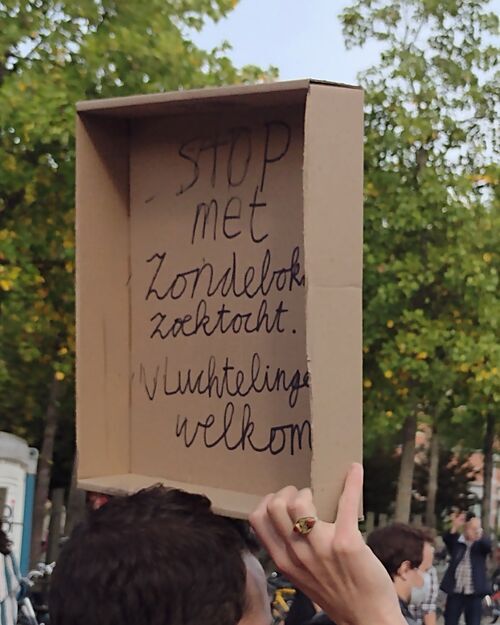 STOP
met
Zondebok
zoektocht.
Vluchtelinge
welkom